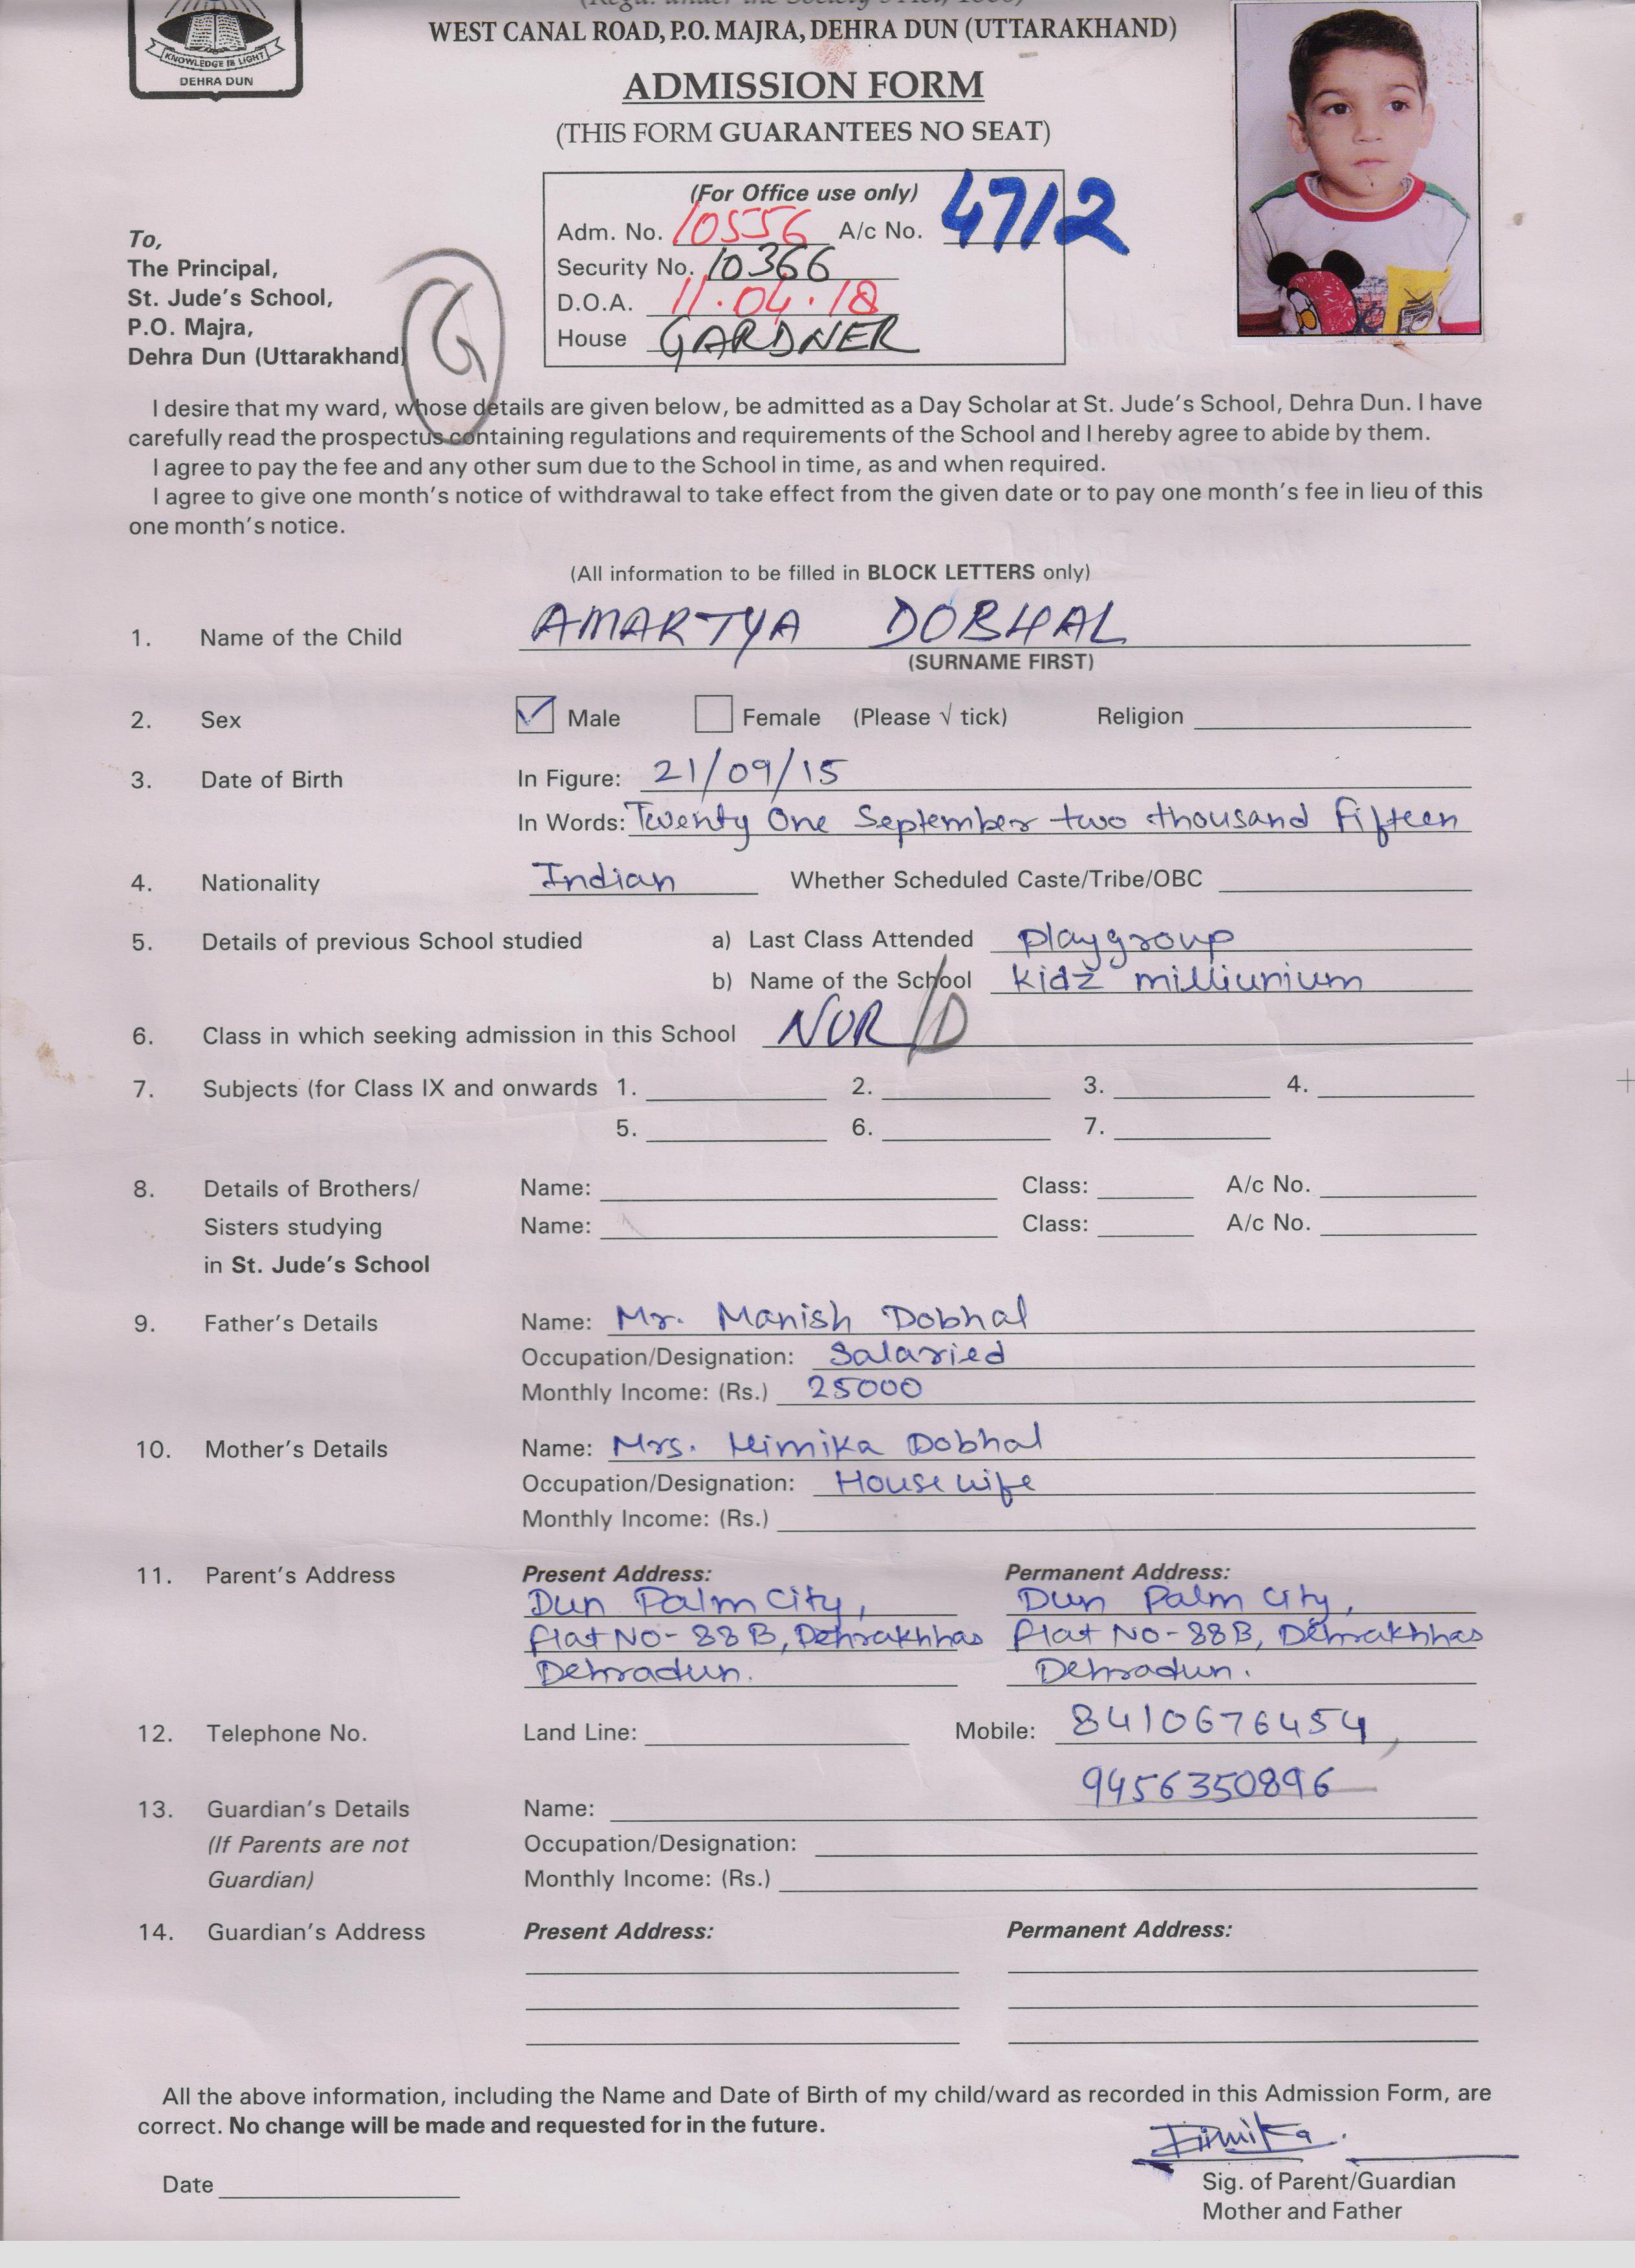 (Regd. under the Society's Act, 1860)
KNOWLEDGE IS LIGHT
DEHRA DUN
WEST CANAL ROAD, P.O. MAJRA, DEHRA DUN (UTTARAKHAND)
ADMISSION FORM
(THIS FORM GUARANTEES NO SEAT)
(For Office use only)
Adm. No. 10556 A/c No. 4712
Security No. 10366
D.O.A. 11.04.18
House GARDNER
To,
The Principal,
St. Jude's School,
P.O. Majra,
Dehra Dun (Uttarakhand)
G
I desire that my ward, whose details are given below, be admitted as a Day Scholar at St. Jude's School, Dehra Dun. I have
carefully read the prospectus containing regulations and requirements of the School and I hereby agree to abide by them.
I agree to pay the fee and any other sum due to the School in time, as and when required.
I agree to give one month's notice of withdrawal to take effect from the given date or to pay one month's fee in lieu of this
one month's notice.
(All information to be filled in BLOCK LETTERS only)
1. Name of the Child AMARTYA DOBHAL
(SURNAME FIRST)
2. Sex Male Female (Please √ tick) Religion
3. Date of Birth In Figure: 21/09/15
In Words: Twenty One September two thousand fifteen
4. Nationality Indian Whether Scheduled Caste/Tribe/OBC
5. Details of previous School studied a) Last Class Attended playgroup
b) Name of the School kidz milliunium
6. Class in which seeking admission in this School NUR/D
7. Subjects (for Class IX and onwards 1. 2. 3. 4.
5. 6. 7.
8. Details of Brothers/ Name: Class: A/c No.
Sisters studying Name: Class: A/c No.
in St. Jude's School
9. Father's Details Name: Mr. Manish Dobhal
Occupation/Designation: Salaried
Monthly Income: (Rs.) 25000
10. Mother's Details Name: Mrs. Himika Dobhal
Occupation/Designation: House wife
Monthly Income: (Rs.)
11. Parent's Address Present Address: Permanent Address:
Dun Palm City, Dun Palm City,
flat NO-88B, Dehrakhhas flat NO-88B, Dehrakhhas
Dehradun. Dehradun.
12. Telephone No. Land Line: Mobile: 8410676454,
9456350896
13. Guardian's Details Name:
(If Parents are not Occupation/Designation:
Guardian) Monthly Income: (Rs.)
14. Guardian's Address Present Address: Permanent Address:
All the above information, including the Name and Date of Birth of my child/ward as recorded in this Admission Form, are
correct. No change will be made and requested for in the future.
Himika.
Date
Sig. of Parent/Guardian
Mother and Father